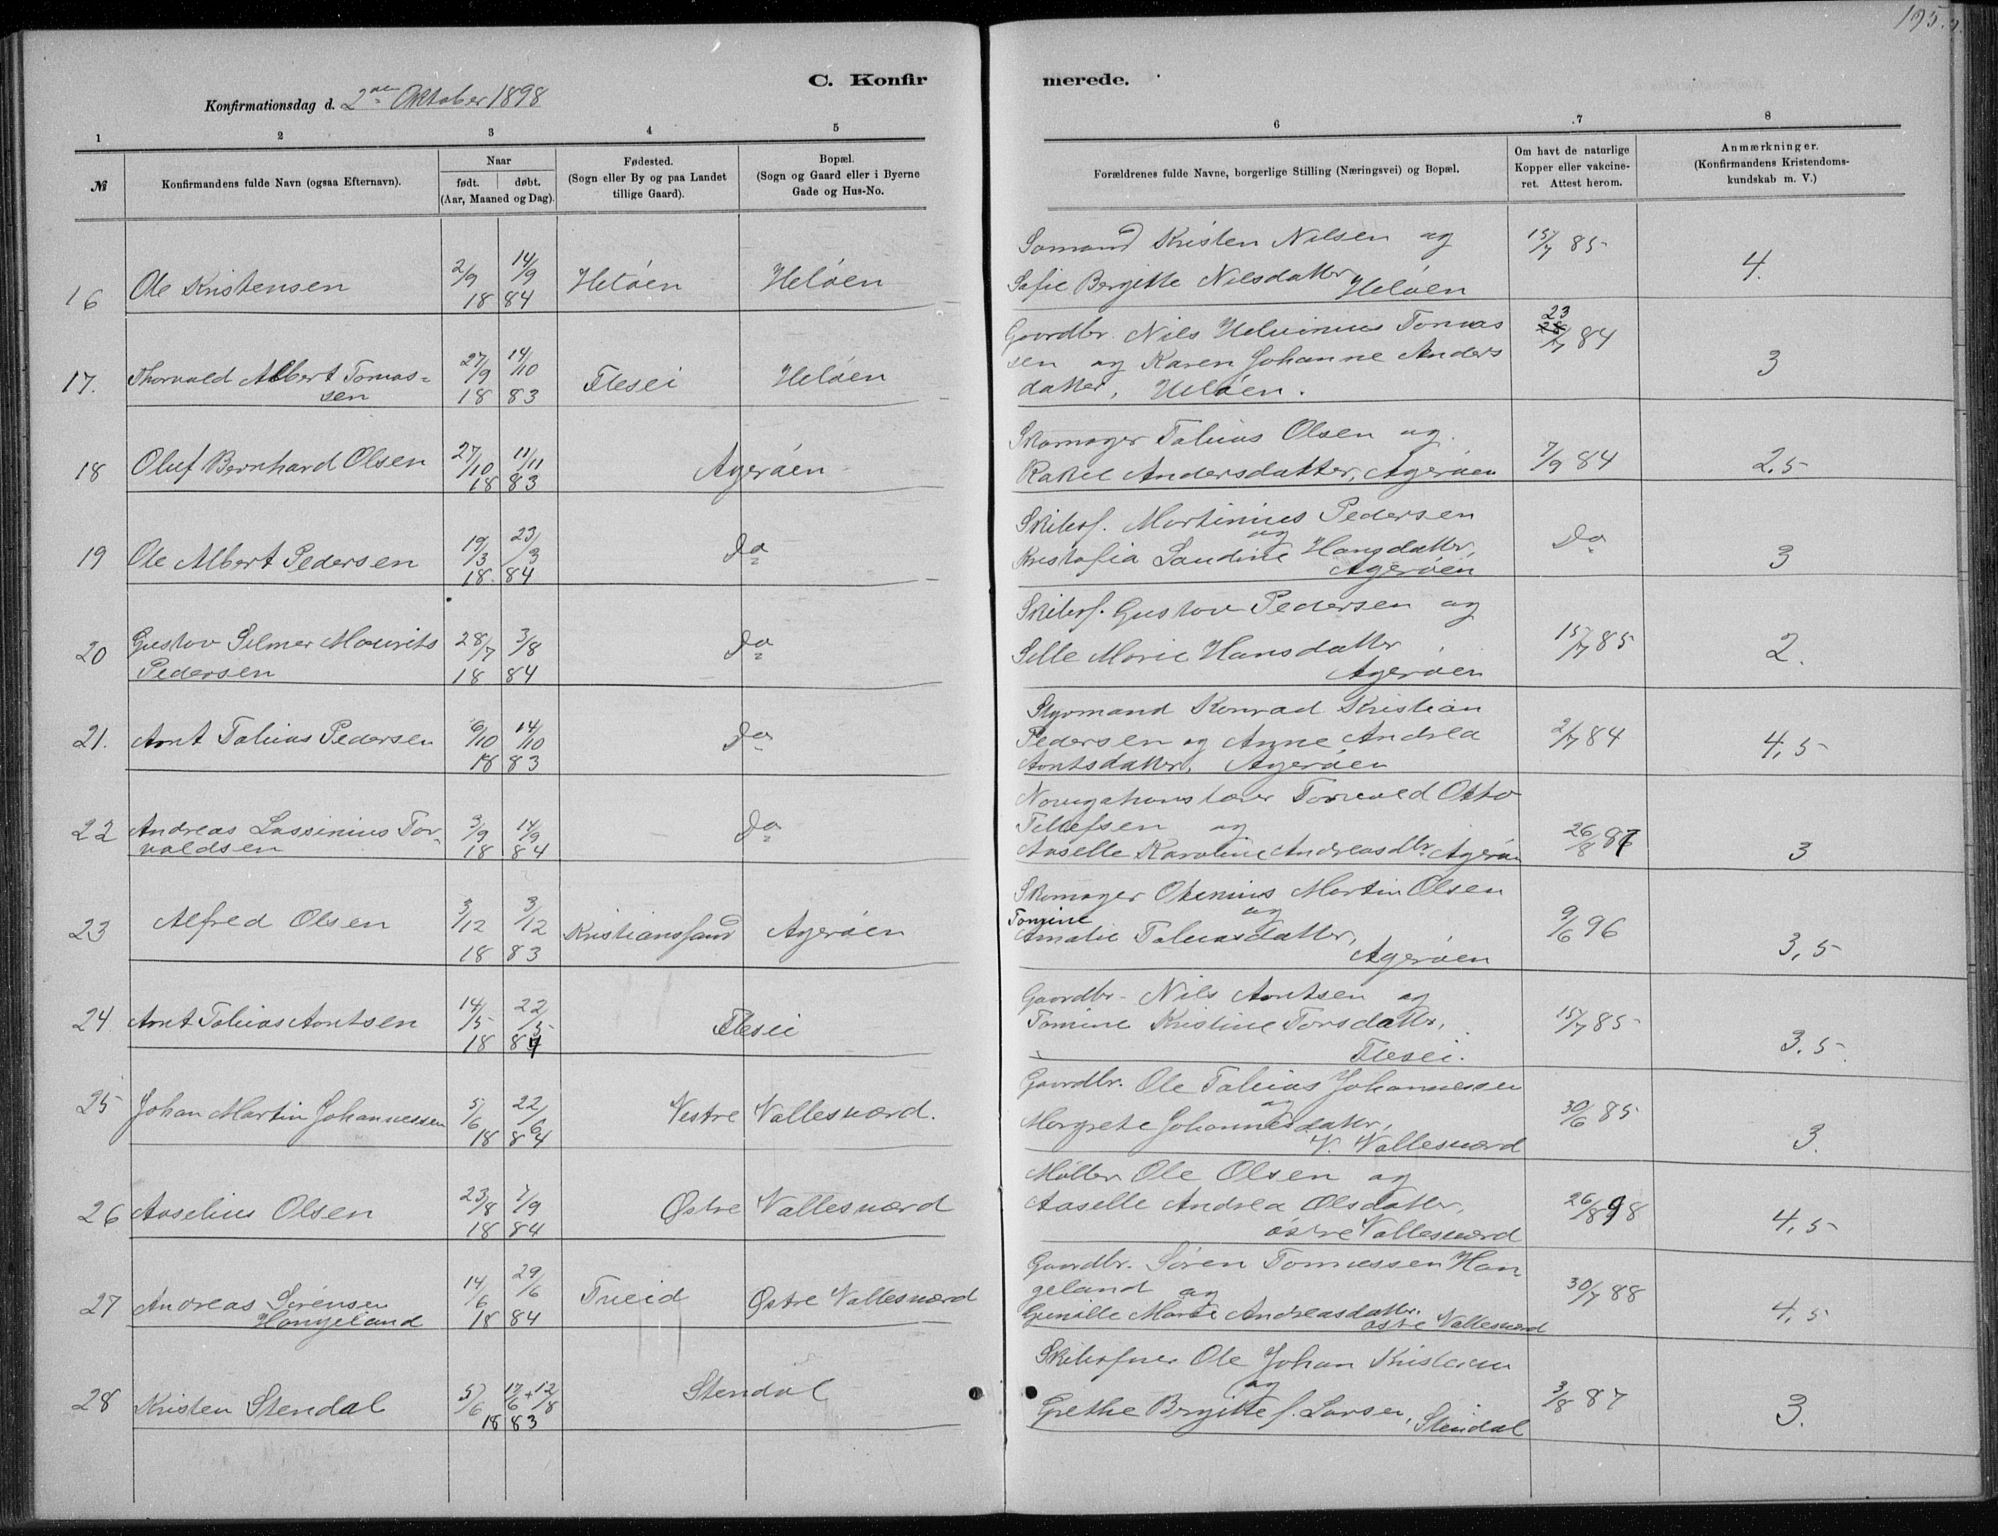 195.
C. Konfirmerede.
Konfirmationsdag d. 2den Oktober 1898
1 2 3 4 5 6 7 8
№
Konfirmandens fulde Navn (ogsaa Efternavn).
Naar
født. døbt.
(Aar, Maaned og Dag).
Fødested.
(Sogn eller By og paa Landet
tillige Gaard).
Bopæl.
(Sogn og Gaard eller i Byerne
Gade og Hus-No.
Forældrenes fulde Navne, borgerlige Stilling (Næringsvei) og Bopæl.
Om havt de naturlige
Kopper eller vakcine-
ret. Attest herom.
Anmærkninger.
(Konfirmandens Kristendoms-
kundskab m. V.)
16 Ole Kristensen 2/9 14/9 1884 Heløen Heløen
Sømand Kristen Nilsen og
Sofie Bergitte Nilsdatter Heløen
15/7 85 4.
17. Thorvald Albert Tomas-
sen 27/9 14/10 1883 Flesei Heløen
Gaardbr. Nils Helvinius Tomas
sen og Karen Johanne Anders
datter, Heløen.
23/7 84 3
18 Oluf Bernhard Olsen 27/10 11/11 1883 Agerøen
Skomager Tobias Olsen og
Rakel Andersdatter, Agerøen
7/9 84 2,5
19 Ole Albert Pedersen 19/3 23/3 1884 Do
Skibsf. Martinius Pedersen
og
Kristofia Landine Hansdatter,
Agerøen
Do 3
20 Gustav Selmer Mourits
Pedersen 28/7 3/8 1884 Do
Skibsf. Gustav Pedersen og
Sille Marie Hansdatter
Agerøen
15/7 85 2.
21. Arnt Tobias Pedersen 6/10 14/10 1883 Do
Styrmand Konrad Kristian
Pedersen og Anne Andrea
Arntsdatter, Agerøen
2/7 84 4,5
22 Andreas Lassinius Tor-
valdsen 3/9 14/9 1884 Do
Navigationslærer Torvald Otto
Tellefsen og
Aaselle Karoline Andreasdtr. Agerøen
26/8 87 3
23 Alfred Olsen 3/12 3/12 1883 Kristianssand Agerøen
Skomager Martin Olsen
og
Tomine
Amalie Tobiasdatter,
Agerøen
9/6 96 3,5
24 Arnt Tobias Arntsen 14/5 22/5 1884 Flesei
Gaardbr. Nils Arntsen og
Tomine Kristine Torsdatter,
Flesei.
15/7 85 3.5
25 Johan Martin Johannessen 5/6 22/6 1884 Vestre Vallesværd.
Gaardbr. Ole Tobias Johannessen
og
Margrete Johannesdatter,
V. Vallesværd
30/6 85 3.
26 Aaselius Olsen 23/8 7/9 1884 Østre Vallesværd
Møller Ole Olsen og
Aaselle Andrea Olsdatter,
østre Vallesværd
26/8 98 4,5
27 Andreas Sørensen
Hangeland 14/6 29/6 1884 Trueid Østre Vallesværd
Gaardbr. Søren Tomessen Han
geland og
Gunille Marie Andreasdatter.
østre Vallesværd
30/7 88 4,5
28 Kristen Stendal 5/6 17/6 + 12/8 1883 Stendal
Skibsfører Ole Johan Kristensen
og
Grethe Birgitte f. Larsen, Stendal
3/8 87 3.